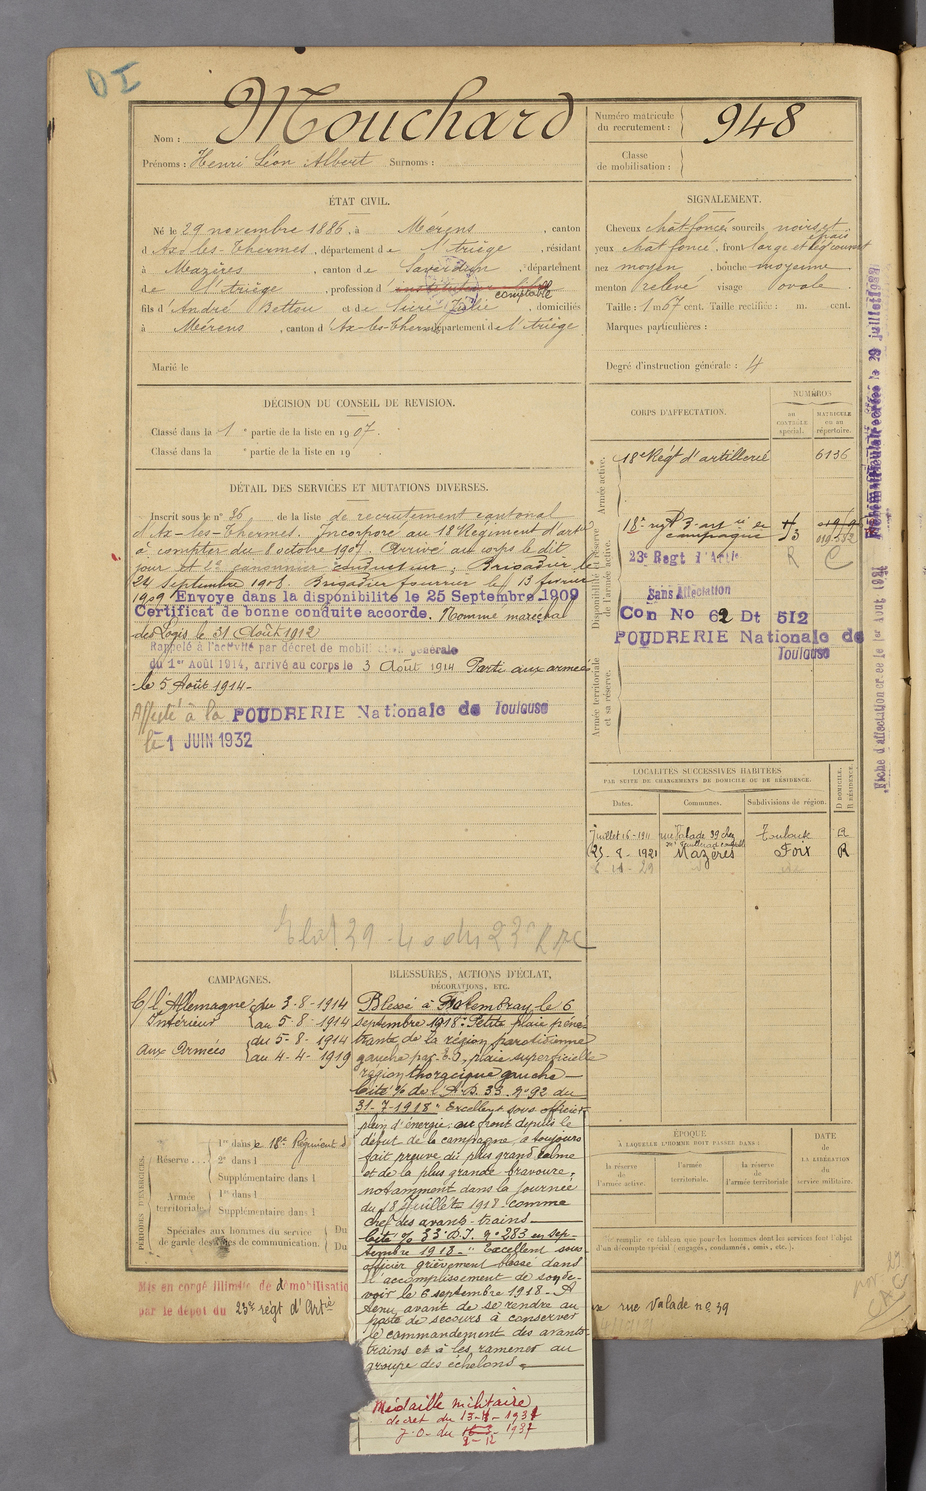 DI
Nom : Mouchard
Prénoms : Henri Léon Albert Surnoms :
Numéro matricule
du recrutement : 948
Classe
de mobilisation :
ÉTAT CIVIL.
Né le 29 novembre 1886, à Mérens, canton
d'Ax-les-Thermes, département de l'Ariège, résidant
à Mazères, canton de Saverdun, département
de l'Ariège, profession d'
comptable
fils d' André Bettou et de Julie, domiciliés
à Mérens, canton d'Ax-les-Thermes, département de l'Ariège
Marié le
SIGNALEMENT.
Cheveux chat. foncés sourcils noirs et
épais
yeux chat. foncé, front large et couvert
nez moyen, bouche moyenne
menton relevé visage ovale
Taille : 1 m 67 cent. Taille rectifiée : m. cent.
Marques particulières :
Degré d'instruction générale : 4
DÉCISION DU CONSEIL DE REVISION.
Classé dans la 1e partie de la liste en 1907.
Classé dans la e partie de la liste en 19
DÉTAIL DES SERVICES ET MUTATIONS DIVERSES.
Inscrit sous le n° 36 de la liste de recrutement cantonal
d'Ax-les-Thermes. Incorporé au 18e Régiment d'artie
à compter du 8 octobre 1907. Arrivé au corps le dit
jour et 2e canonnier conducteur. Brigadier le
24 Septembre 1908. Brigadier fourrier le 13 février
1909 Envoye dans la disponibilité le 25 Septembre 1909
Certificat de bonne conduite accorde. Nommé maréchal
des Logis le 31 Août 1912
Rappelé à l'activité par décret de mobilisation générale
du 1er Août 1914, arrivé au corps le 3 Août 1914 Parti aux armées
le 5 Août 1914-
Affecté à la POUDRERIE Nationale de Toulouse
le 1 JUIN 1932
CORPS D'AFFECTATION.
NUMÉROS
au
CONTRÔLE
spécial.
MATRICULE
ou au
répertoire.
Armée active.
18e Régt d'artillerie 6136
Disponibilité et réserve
de l'armée active.
campagne
23e Regt d'Artie R C
Sans Affectation
Con No 62 Dt 512
POUDRERIE Nationale de
Toulouse
Armée territoriale
et sa réserve.
Fiche d'affectation créée le 1er Août 1921
LOCALITÉS SUCCESSIVES HABITÉES
PAR SUITE DE CHANGEMENTS DE DOMICILE OU DE RÉSIDENCE.
D DOMICILE.
R RÉSIDENCE.
Dates. Communes. Subdivisions de région.
Juillet 16-1911 rue Valade 39 chez Toulouse R
25-8-1921 Mazères Foix R
CAMPAGNES.
C/ l'Allemagne du 3-8-1914
Intérieur au 5-8-1914
Aux Armées du 5-8-1914
au 4-4-1919
BLESSURES, ACTIONS D'ÉCLAT,
DÉCORATIONS, ETC.
Blessé à Folembray, le 6
septembre 1918. Petite plaie péné-
trante de la région parotidienne
gauche par E.O., plaie superficielle
région thoracique gauche -
Cité % de l'A.D. 33. n° 92 du
31-7-1918 " Excellent sous officier
plein d'énergie. au front depuis le
début de la campagne, a toujours
fait preuve du plus grand calme
et de la plus grande bravoure,
notamment dans la journée
du 18 Juillet 1918 comme
chef des avants-trains -
Cité % 33e D.I. n° 283 en sep-
tembre 1918 - " Excellent sous
officier grièvement blessé dans
l'accomplissement de son de-
voir le 6 septembre 1918 - A
tenu avant de se rendre au
poste de secours à conserver
le commandement des avants-
trains et à les ramener au
groupe des échelons "
Médaille militaire
décret du
J.O. du
PÉRIODES D'EXERCICES.
Réserve ... 1re dans le 18e Régiment d
2e dans l
Supplémentaire dans l
Armée
territoriale 1re dans l
Supplémentaire dans l
Spéciales aux hommes du service
de garde des voies de communication. Du
Du
ÉPOQUE
À LAQUELLE L'HOMME DOIT PASSER DANS :
la réserve
de
l'armée active.
l'armée
territoriale.
la réserve
de
l'armée territoriale
DATE
de
LA LIBÉRATION
du
service militaire.
Ne remplir ce tableau que pour les hommes dont les services font l'objet
d'un décompte spécial (engagés, condamnés, omis, etc.).
Mis en congé illimité de démobilisation
par le dépot du 23e régt d'Artie
rue Valade n° 39